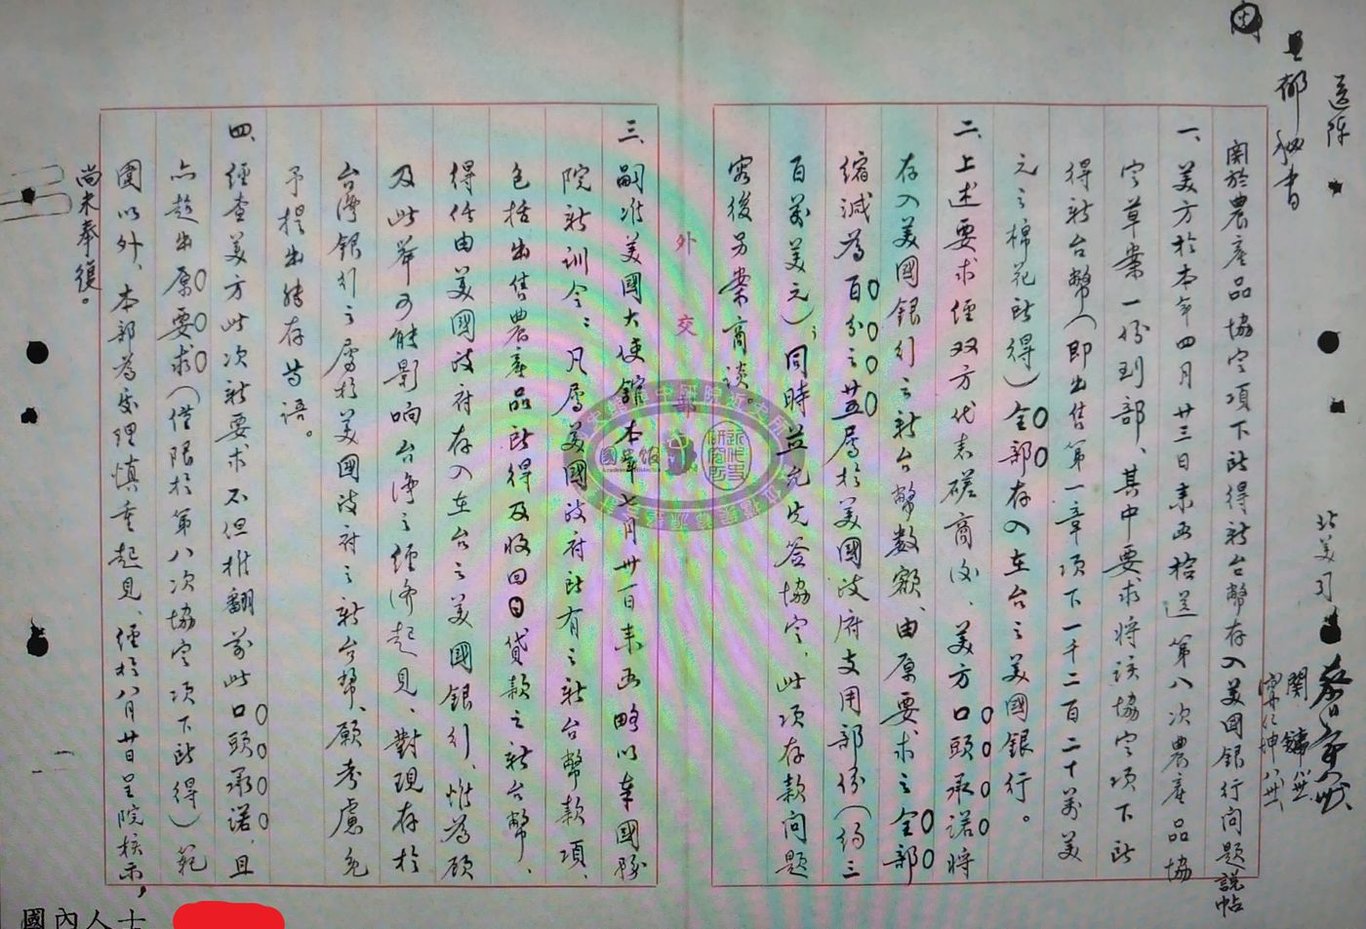 送陳
郁秘書
北美司
關於農產品協定項下所得新台幣存入美國銀行問題說帖
一、美方於本年四月廿三日來函檢送第八次農產品協
定草案一份到部、其中要求將該協定項下所
得新台幣(即出售第一章項下一千二百二十萬美
元之棉花所得)全部存入在台之美國銀行。
二、上述要求經双方代表磋商後、美方口頭承諾將
存入美國銀行之新台幣數額、由原要求之全部
縮減為百分之廿五屬於美國政府支用部份(約三
百萬美元)；同時並允先簽協定、此項存款問題
容後另案商談。
外交部
三、嗣准美國大使館本年七月卅一日來函略以奉國務
院新訓令：凡屬美國政府所有之新台幣款項、
包括出售農產品所得及收回貸款之新台幣、
得任由美國政府存入在台之美國銀行、惟為顧
及此舉可能影响台灣之經濟起見、對現存於
台灣銀行之屬於美國政府之新台幣、願考慮免
予提出轉存等語。
四、經查美方此次新要求不但推翻前此口頭承諾、且
亦超出原要求(僅限於第八次協定項下所得)範
圍以外、本部為處理慎重起見、經於八月廿日呈院核示，
尚未奉復。
國內人士